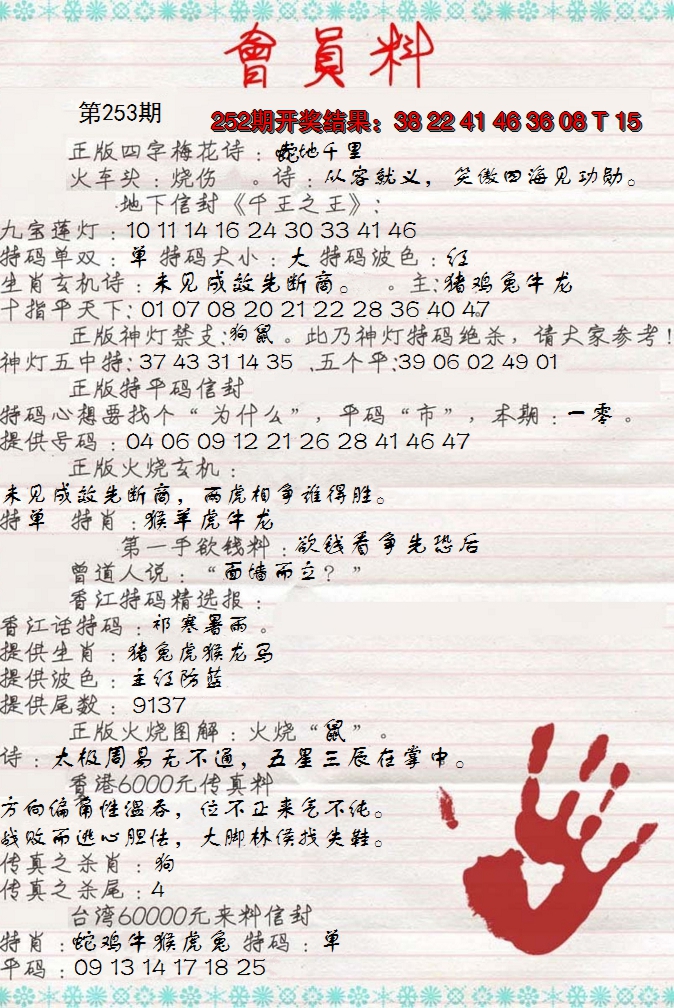 會員料
第253期
252期开奖结果：38 22 41 46 36 08 T 15
正版四字梅花诗：蛇地千里
火车头：烧伤 。诗：从容就义，笑傲四海见功勋。
地下信封《千王之王》：
九宝莲灯：10 11 14 16 24 30 33 41 46
特码单双：单 特码大小：大 特码波色：红
生肖玄机诗：未见成效先断商。 。主:猪鸡兔牛龙
十指平天下: 01 07 08 20 21 22 28 36 40 47
正版神灯禁支:狗鼠。此乃神灯特码绝杀，请大家参考!
神灯五中特: 37 43 31 14 35 、五个平:39 06 02 49 01
正版特平码信封
特码心想要找个“为什么”，平码“市”，本期：一零。
提供号码：04 06 09 12 21 26 28 41 46 47
正版火烧玄机：
未见成效先断商，两虎相争谁得胜。
特单 特肖：猴羊虎牛龙
第一手欲钱料：欲钱看争先恐后
曾道人说：“面墙而立？”
香江特码精选报：
香江话特码：祁寒暑雨。
提供生肖：猪兔虎猴龙马
提供波色：主红防蓝
提供尾数： 9137
正版火烧图解：火烧“鼠”。
诗：太极周易无不通，五星三辰在掌中。
香港6000元传真料
方向偏角性温吞，位不正来气不纯。
战败而逃心胆怯，大脚林侯找失鞋。
传真之杀肖：狗
传真之杀尾：4
台湾60000元来料信封
特肖：蛇鸡牛猴虎兔 特码：单
平码：09 13 14 17 18 25